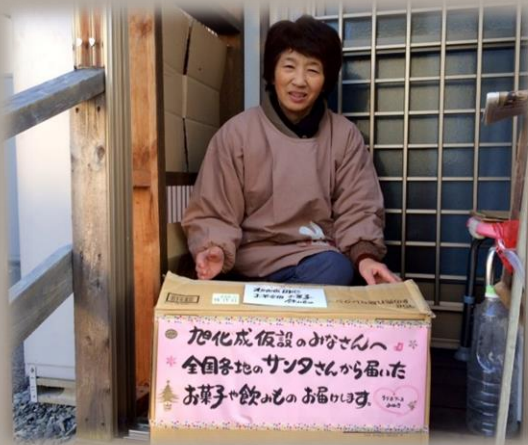 旭化成仮設のみなさんへ
全国各地のサンタさんから届いた
お菓子や飲みもの お届けします。